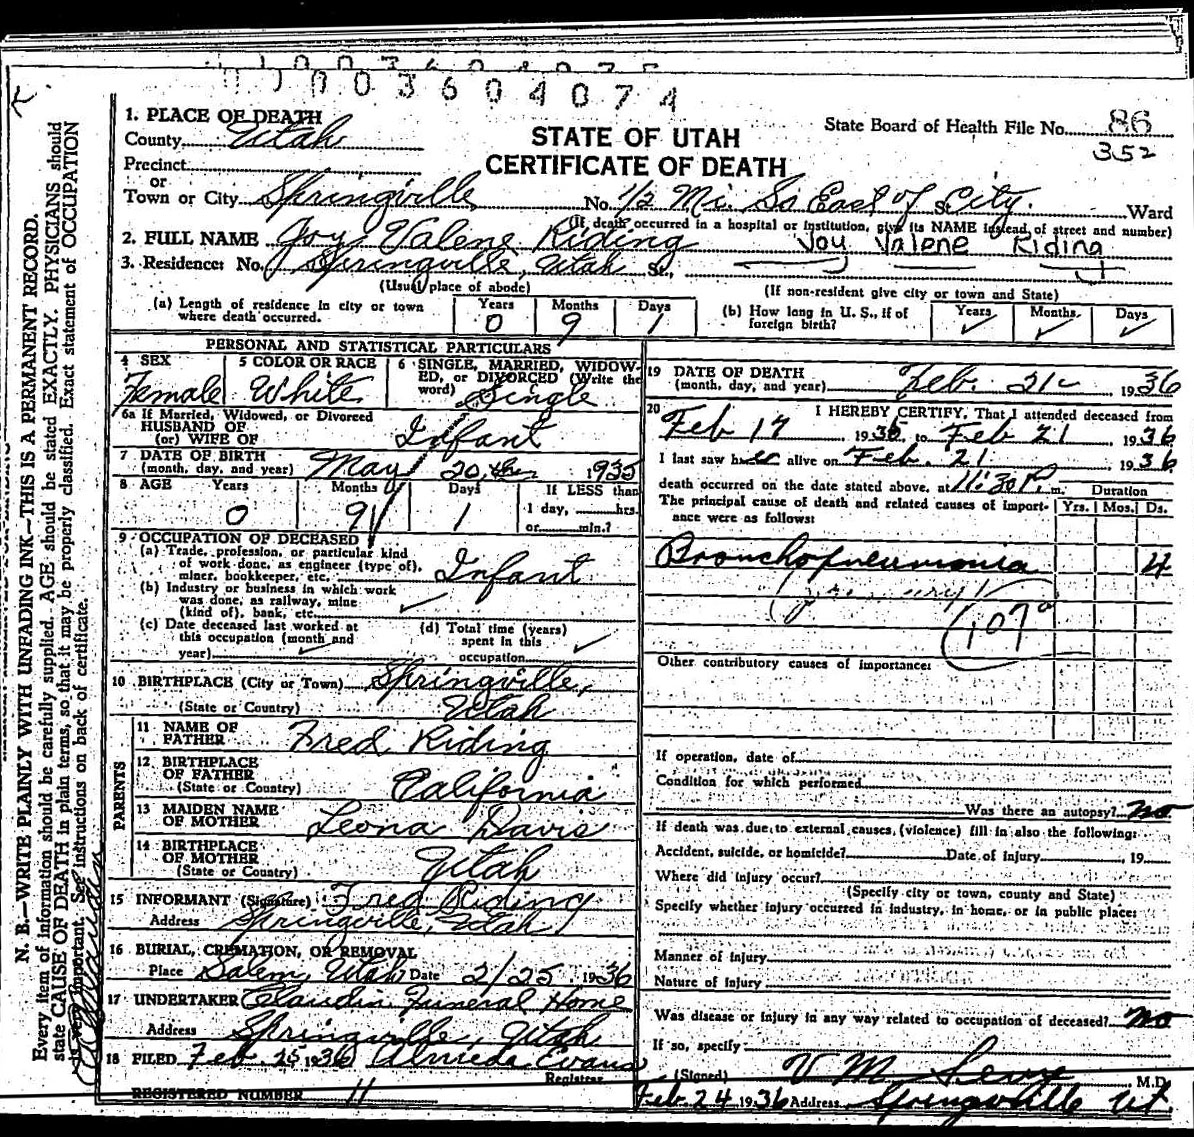 0003604074
1. PLACE OF DEATH
County Utah
STATE OF UTAH
CERTIFICATE OF DEATH
State Board of Health File No. 86
352
Precinct
or
Town or City Springville No. 1/2 Mi. So East of St. City. Ward
(If death occurred in a hospital or institution, give its NAME instead of street and number)
2. FULL NAME Joy Valene Riding Joy Valene Riding
3. Residence: No. Springville, Utah St.,
(Usual place of abode) (If non-resident give city or town and State)
(a) Length of residence in city or town where death occurred. Years 0 Months 9 Days 1
(b) How long in U. S., if of foreign birth? Years ✓ Months ✓ Days ✓
PERSONAL AND STATISTICAL PARTICULARS
4 SEX Female
5 COLOR OR RACE White
6 SINGLE, MARRIED, WIDOWED, or DIVORCED (Write the word) Single
6a If Married, Widowed, or Divorced
HUSBAND OF
(or) WIFE OF Infant
7 DATE OF BIRTH
(month, day, and year) May 20 1935
8 AGE Years 0 Months 9 Days 1 If LESS than 1 day, hrs. or min.?
9 OCCUPATION OF DECEASED
(a) Trade, profession, or particular kind
of work done, as engineer (type of),
miner, bookkeeper, etc. Infant
(b) Industry or business in which work
was done, as railway, mine
(kind of), bank, etc. ✓
(c) Date deceased last worked at
this occupation (month and
year) ✓
(d) Total time (years)
spent in this
occupation ✓
10 BIRTHPLACE (City or Town) Springville,
(State or Country) Utah
PARENTS
11 NAME OF
FATHER Fred Riding
12 BIRTHPLACE
OF FATHER
(State or Country) California
13 MAIDEN NAME
OF MOTHER Leona Davis
14 BIRTHPLACE
OF MOTHER
(State or Country) Utah
15 INFORMANT (Signature) Fred Riding
Address Springville, Utah
16 BURIAL, CREMATION, OR REMOVAL
Place Salem, Utah Date 2/25 1936
17 UNDERTAKER Claudin Funeral Home
Address Springville, Utah
18 FILED Feb. 25 1936 Almeda Evans
Registrar
REGISTERED NUMBER 11
19 DATE OF DEATH
(month, day, and year) Feb. 21 1936
20 I HEREBY CERTIFY, That I attended deceased from
Feb 17 1936, to Feb 21, 1936
I last saw her alive on Feb. 21 1936
death occurred on the date stated above, at 11:30 P. m.
The principal cause of death and related causes of importance were as follows:
Duration
Yrs. Mos. Ds.
Bronchopneumonia 4
107a
Other contributory causes of importance:
If operation, date of
Condition for which performed
Was there an autopsy? no
If death was due to external causes, (violence) fill in also the following:
Accident, suicide, or homicide? Date of injury , 19
Where did injury occur?
(Specify city or town, county and State)
Specify whether injury occurred in industry, in home, or in public place:
Manner of injury
Nature of injury
Was disease or injury in any way related to occupation of deceased? no
If so, specify
(Signed) V M M.D.
Feb. 24 1936 Address Springville Ut.
N. B.—WRITE PLAINLY WITH UNFADING INK—THIS IS A PERMANENT RECORD.
Every item of information should be carefully supplied. AGE should be stated EXACTLY. PHYSICIANS should
state CAUSE OF DEATH in plain terms, so that it may be properly classified. Exact statement of OCCUPATION
is very important. See instructions on back of certificate.